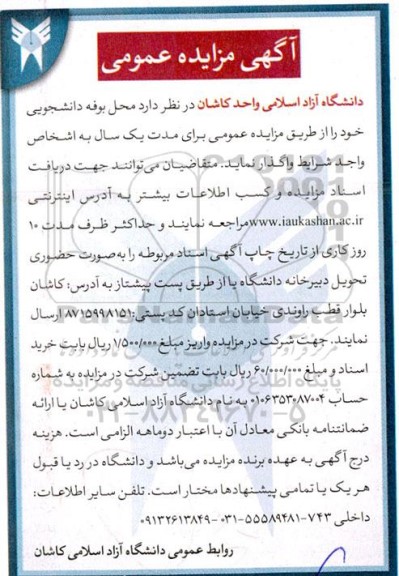 آگهی مزایده عمومی
دانشگاه آزاد اسلامی واحد کاشان در نظر دارد محل بوفه دانشجویی
خود را از طریق مزایده عمومی برای مدت یک سال به اشخاص
واجد شرایط واگذار نماید. متقاضیان می‌توانند جهت دریافت
اسناد مزایده و کسب اطلاعات بیشتر به آدرس اینترنتی
www.iaukashan.ac.ir مراجعه نمایند و حداکثر ظرف مدت ۱۰
روز کاری از تاریخ چاپ آگهی اسناد مربوطه را به‌صورت حضوری
تحویل دبیرخانه دانشگاه یا از طریق پست پیشتاز به آدرس: کاشان
بلوار قطب راوندی خیابان استادان کد پستی: ۸۷۱۵۹۹۸۱۵۱ ارسال
نمایند. جهت شرکت در مزایده واریز مبلغ ۱/۵۰۰/۰۰۰ ریال بابت خرید
اسناد و مبلغ ۶۰/۰۰۰/۰۰۰ ریال بابت تضمین شرکت در مزایده به شماره
حساب ۰۱۰۶۳۵۳۰۸۷۰۰۴ به نام دانشگاه آزاد اسلامی کاشان یا ارائه
ضمانتنامه بانکی معادل آن با اعتبار دوماهه الزامی است. هزینه
درج آگهی به عهده برنده مزایده می‌باشد و دانشگاه در رد یا قبول
هر یک یا تمامی پیشنهادها مختار است. تلفن سایر اطلاعات:
داخلی ۷۴۳-۵۵۵۸۹۴۸۱-۰۳۱ -۰۹۱۳۲۶۱۳۸۴۹
روابط عمومی دانشگاه آزاد اسلامی کاشان
پایگاه اطلاع رسانی مناقصه و مزایده
۰۲۱-۸۸۳۴۹۶۷۰-۵